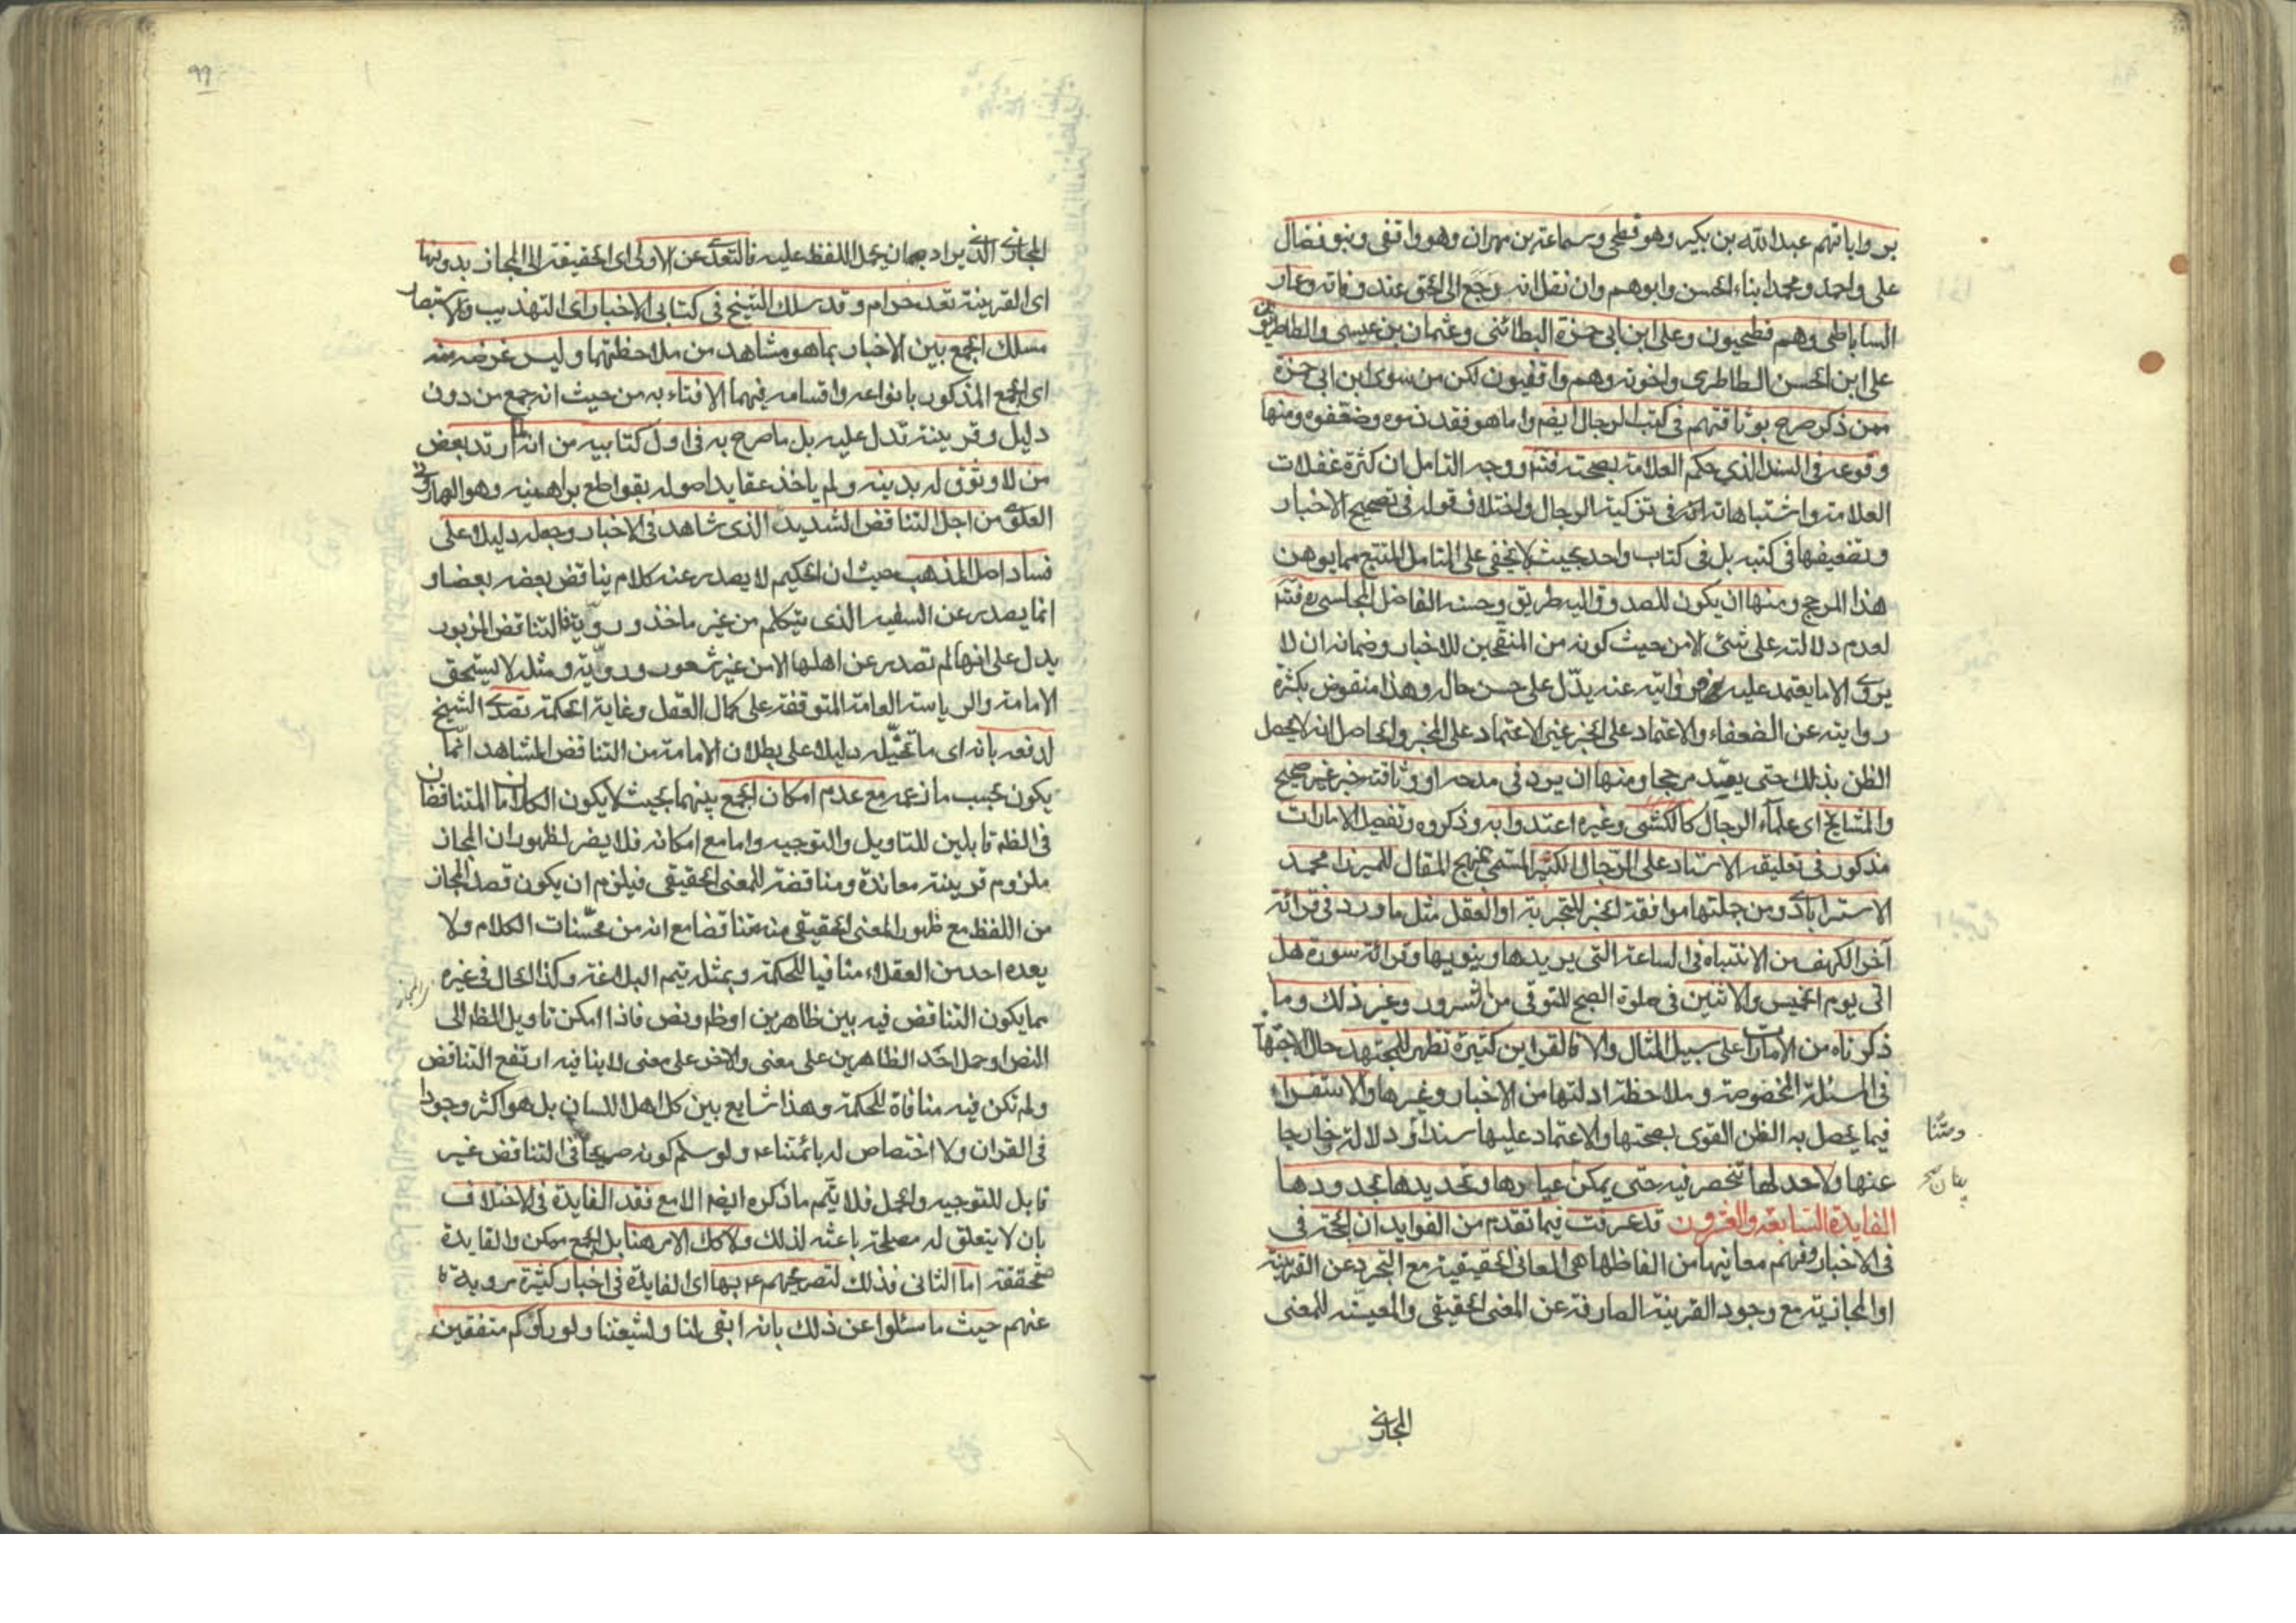 برواياتهم عبد الله بن بكير وهو فطحي وسماعة بن مهران وهو واقفي وبنو فضال
علي واحمد ومحمد ابناء الحسن وابوهم وان نقل انه رجع الى الحق عند وفاته وعمار
الساباطي وهم فطحيون وعلي ابن ابي حمزة البطائني وعثمان بن عيسى والطاطريون
علي ابن الحسن الطاطري واخوته وهم واقفيون لكن من سوى ابن ابي حمزة
ممن ذكر صرح بوثاقتهم في كتب الرجال ايضا واما هو فقد ذموه وضعفوه ومنها
وقوعه في السند الذي حكم العلامة بصحته فتم ووجه التامل ان كثرة غفلات
العلامة واشتباهاته في تزكية الرجال واختلاف قوله في تصحيح الاخبار
وتضعيفها في كتبه بل في كتاب واحد بحيث لا يخفى على المتامل المتتبع مما يوهن
هذا المرجح ومنها ان يكون للصدوق اليه طريق وحسنه الفاضل المجلسي ره فتم
لعدم دلالته على شئ الا من حيث كونه من المنقحين للاخبار وضمانه ان لا
يروي الا ما يعتمد عليه فروايته عنه يدل على حسن حاله وهذا منقوض بكثرة
روايته عن الضعفاء والاعتماد على الخبر غير الاعتماد على المخبر والحاصل انه لا يحصل
الظن بذلك حتى يعد مرجحا ومنها ان يرد في مدحه او وثاقته خبر غير صحيح
والمشايخ اى علماء الرجال كالكشي وغيره اعتدوا به وذكروه وتفصيل الامارات
مذكور في تعليقه الاستاد على الرجال الكبير المسمى بمنهج المقال للميرزا محمد
الاسترابادي ومن جملتها موافقة الخبر للتجربة او العقل مثل ما ورد في قرائة
آخر الكهف من الانتباه في الساعة التي يريدها وينويها وقرائة سورة هل
اتى يوم الخميس والاثنين في صلوة الصبح للتوقي من الشرور وغير ذلك وما
ذكرناه من الامارات على سبيل المثال والا فالقراين كثيرة تظهر للمجتهد حال الاجتهاد
في المسئلة المخصوصة وملاحظة ادلتها من الاخبار وغيرها والاستقراء
فيما يحصل به الظن القوى بصحتها والاعتماد عليها سندا و دلالة خارجا
ومتنا
عنها ولا حد لها تنحصر فيه حتى يمكن عيارها وتحديدها بحدودها
الفايدة السابعة والعشرون قد عرفت فيما تقدم من الفوايد ان الحجة في
في الاخبار وفهم معانيها من الفاظها هي المعاني الحقيقية مع التجرد عن القرينة
او المجازية مع وجود القرينة الصارفة عن المعنى الحقيقي والمعينة للمعنى
المجازي
٩٩
المجازي الذي يراد بها ان يحمل اللفظ عليه فالتعدي عن الاولى اى الحقيقة الى المجاز بدونها
اى القرينة تعد حرام و قد سلك الشيخ في كتابي الاخبار اى التهذيب والاستبصار
مسلك الجمع بين الاخبار بما هو مشاهد من ملاحظتهما وليس غرضه منه
اى الجمع المذكور بانواعه واقسامه فيهما الافتاء به من حيث انه جمع من دون
دليل وقرينة تدل عليه بل ما صرح به في اول كتابيه من انه ارتد بعض
من لا وثوق له بدينه ولم ياخذ عقايد اصوله بقواطع براهينه وهو الهاروني
العلوي من اجل التناقض الشديد الذي شاهد في الاخبار وجعله دليلا على
فساد اصل المذهب حيث ان الحكيم لا يصدر عنه كلام يناقض بعضه بعضا و
انما يصدر عن السفيه الذي يتكلم من غير ماخذ و روية فالتناقض المزبور
يدل على انها لم تصدر عن اهلها الا من غير شعور ورويه ومثله لا يستحق
الامامة والرياسة العامة المتوقفة على كمال العقل وغاية الحكمة تصدى الشيخ
لدفعه بانه اى ما تخيله دليلا على بطلان الامامة من التناقض المشاهد انما
يكون بحسب ما زعمه مع عدم امكان الجمع بينهما بحيث لا يكون الكلامان المتناقضان
في الظم قابلين للتاويل والتوجيه واما مع امكانه فلا يضر لظهور ان المجاز
ملزوم قرينة معاندة ومناقضة للمعنى الحقيقي فيلزم ان يكون قصد المجاز
من اللفظ مع ظهور المعنى الحقيقي منه متناقضا مع انه من محسنات الكلام ولا
يعده احد من العقلاء منافيا للحكمة وبمثله يتم البلاغة وكذا الحال في غيره
مما يكون التناقض فيه بين ظاهرين او ظم ونص فاذا امكن تاويل الظم الى
النص او حمل احد الظاهرين على معنى والاخر على معنى لا ينافيه ارتفع التناقض
ولم تكن فيه منافاة للحكمة وهذا شايع بين كل اهل اللسان بل هو اكثر وجودا
في القران ولا اختصاص له بائمتنا ع و لو سلم كونه صريحا في التناقض غير
قابل للتوجيه والحمل فلا يتم ما ذكره ايضا الا مع فقد الفايدة في الاختلاف
بان لا يتعلق له مصلحة باعثه لذلك ولا كك الامر هنا بل الجمع ممكن والفايدة
محققة اما الثاني فذلك لتصريحهم ع بها اى الفايدة في اخبار كثيرة مروية
عنهم حيث ما سئلوا عن ذلك بانه ابقى لنا ولشيعتنا ولو راوكم متفقين